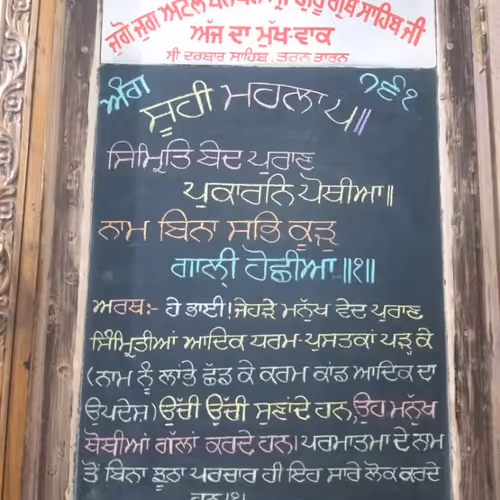 ਜੁਗੋ ਜੁਗ ਅਟੱਲ ਸ੍ਰੀ ਗੁਰੂ ਗ੍ਰੰਥ ਸਾਹਿਬ ਜੀ
ਅੱਜ ਦਾ ਮੁੱਖ-ਵਾਕ
ਸ੍ਰੀ ਦਰਬਾਰ ਸਾਹਿਬ, ਤਰਨ ਤਾਰਨ
ਅੰਗ ੭੬੧
ਸੂਹੀ ਮਹਲਾ ੫॥
ਸਿਮ੍ਰਿਤਿ ਬੇਦ ਪੁਰਾਣ
ਪੁਕਾਰਨਿ ਪੋਥੀਆ॥
ਨਾਮ ਬਿਨਾ ਸਭਿ ਕੂੜੁ
ਗਾਲੀ੍ ਹੋਛੀਆ॥੧॥
ਅਰਥ:- ਹੇ ਭਾਈ! ਜੇਹੜੇ ਮਨੁੱਖ ਵੇਦ ਪੁਰਾਣ
ਸਿੰਮ੍ਰਿਤੀਆਂ ਆਦਿਕ ਧਰਮ-ਪੁਸਤਕਾਂ ਪੜ੍ਹ ਕੇ
(ਨਾਮ ਨੂੰ ਲਾਂਭੇ ਛੱਡ ਕੇ ਕਰਮ ਕਾਂਡ ਆਦਿਕ ਦਾ
ਉਪਦੇਸ) ਉੱਚੀ ਉੱਚੀ ਸੁਣਾਂਦੇ ਹਨ, ਉਹ ਮਨੁੱਖ
ਥੋਥੀਆਂ ਗੱਲਾਂ ਕਰਦੇ ਹਨ। ਪਰਮਾਤਮਾ ਦੇ ਨਾਮ
ਤੋਂ ਬਿਨਾ ਝੂਠਾ ਪਰਚਾਰ ਹੀ ਇਹ ਸਾਰੇ ਲੋਕ ਕਰਦੇ
ਹਨ।੧।